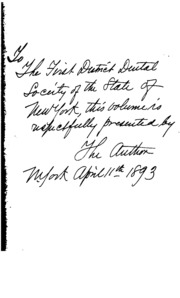 To
The First District Dental
Society of the State of
New York, this volume is
respectfully presented by
The Author
N. York April 11th 1893